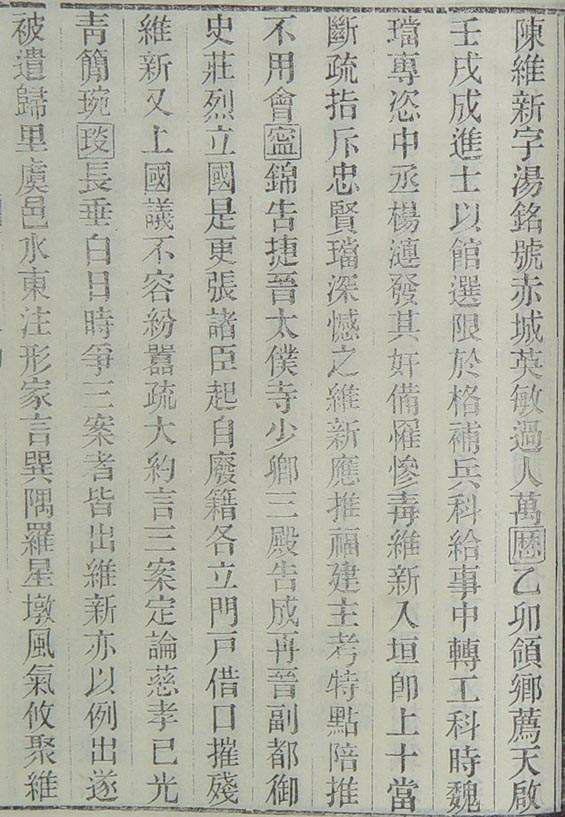 陳維新字湯銘號赤城英敏過人萬歷乙卯領鄉薦天啟
壬戌成進士以館選限於格補兵科給事中轉工科時魏
璫專恣中丞楊漣發其奸備罹慘毒維新入垣卽上十當
斷疏指斥忠賢璫深憾之維新應推福建主考特點陪推
不用會寍錦吿捷晉太僕寺少卿三殿吿成再晉副都御
史莊烈立國是更張諸臣起自廢籍各立門戸借口摧殘
維新又上國議不容紛囂疏大約言三案定論慈孝已光
靑簡琬琰長垂白日時爭三案者皆出維新亦以例出遂
被遣歸里虞邑水東注形家言巽隅羅星墩風氣攸聚維